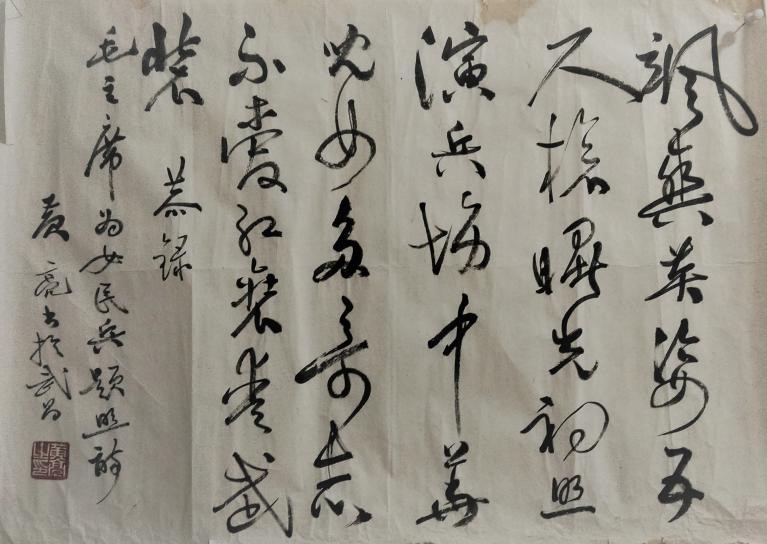 飒爽英姿五
尺枪曙光初照
演兵场中华
儿女多奇志
不爱红装爱武
装 恭录
毛主席为女民兵题照诗
黄亮书于武昌